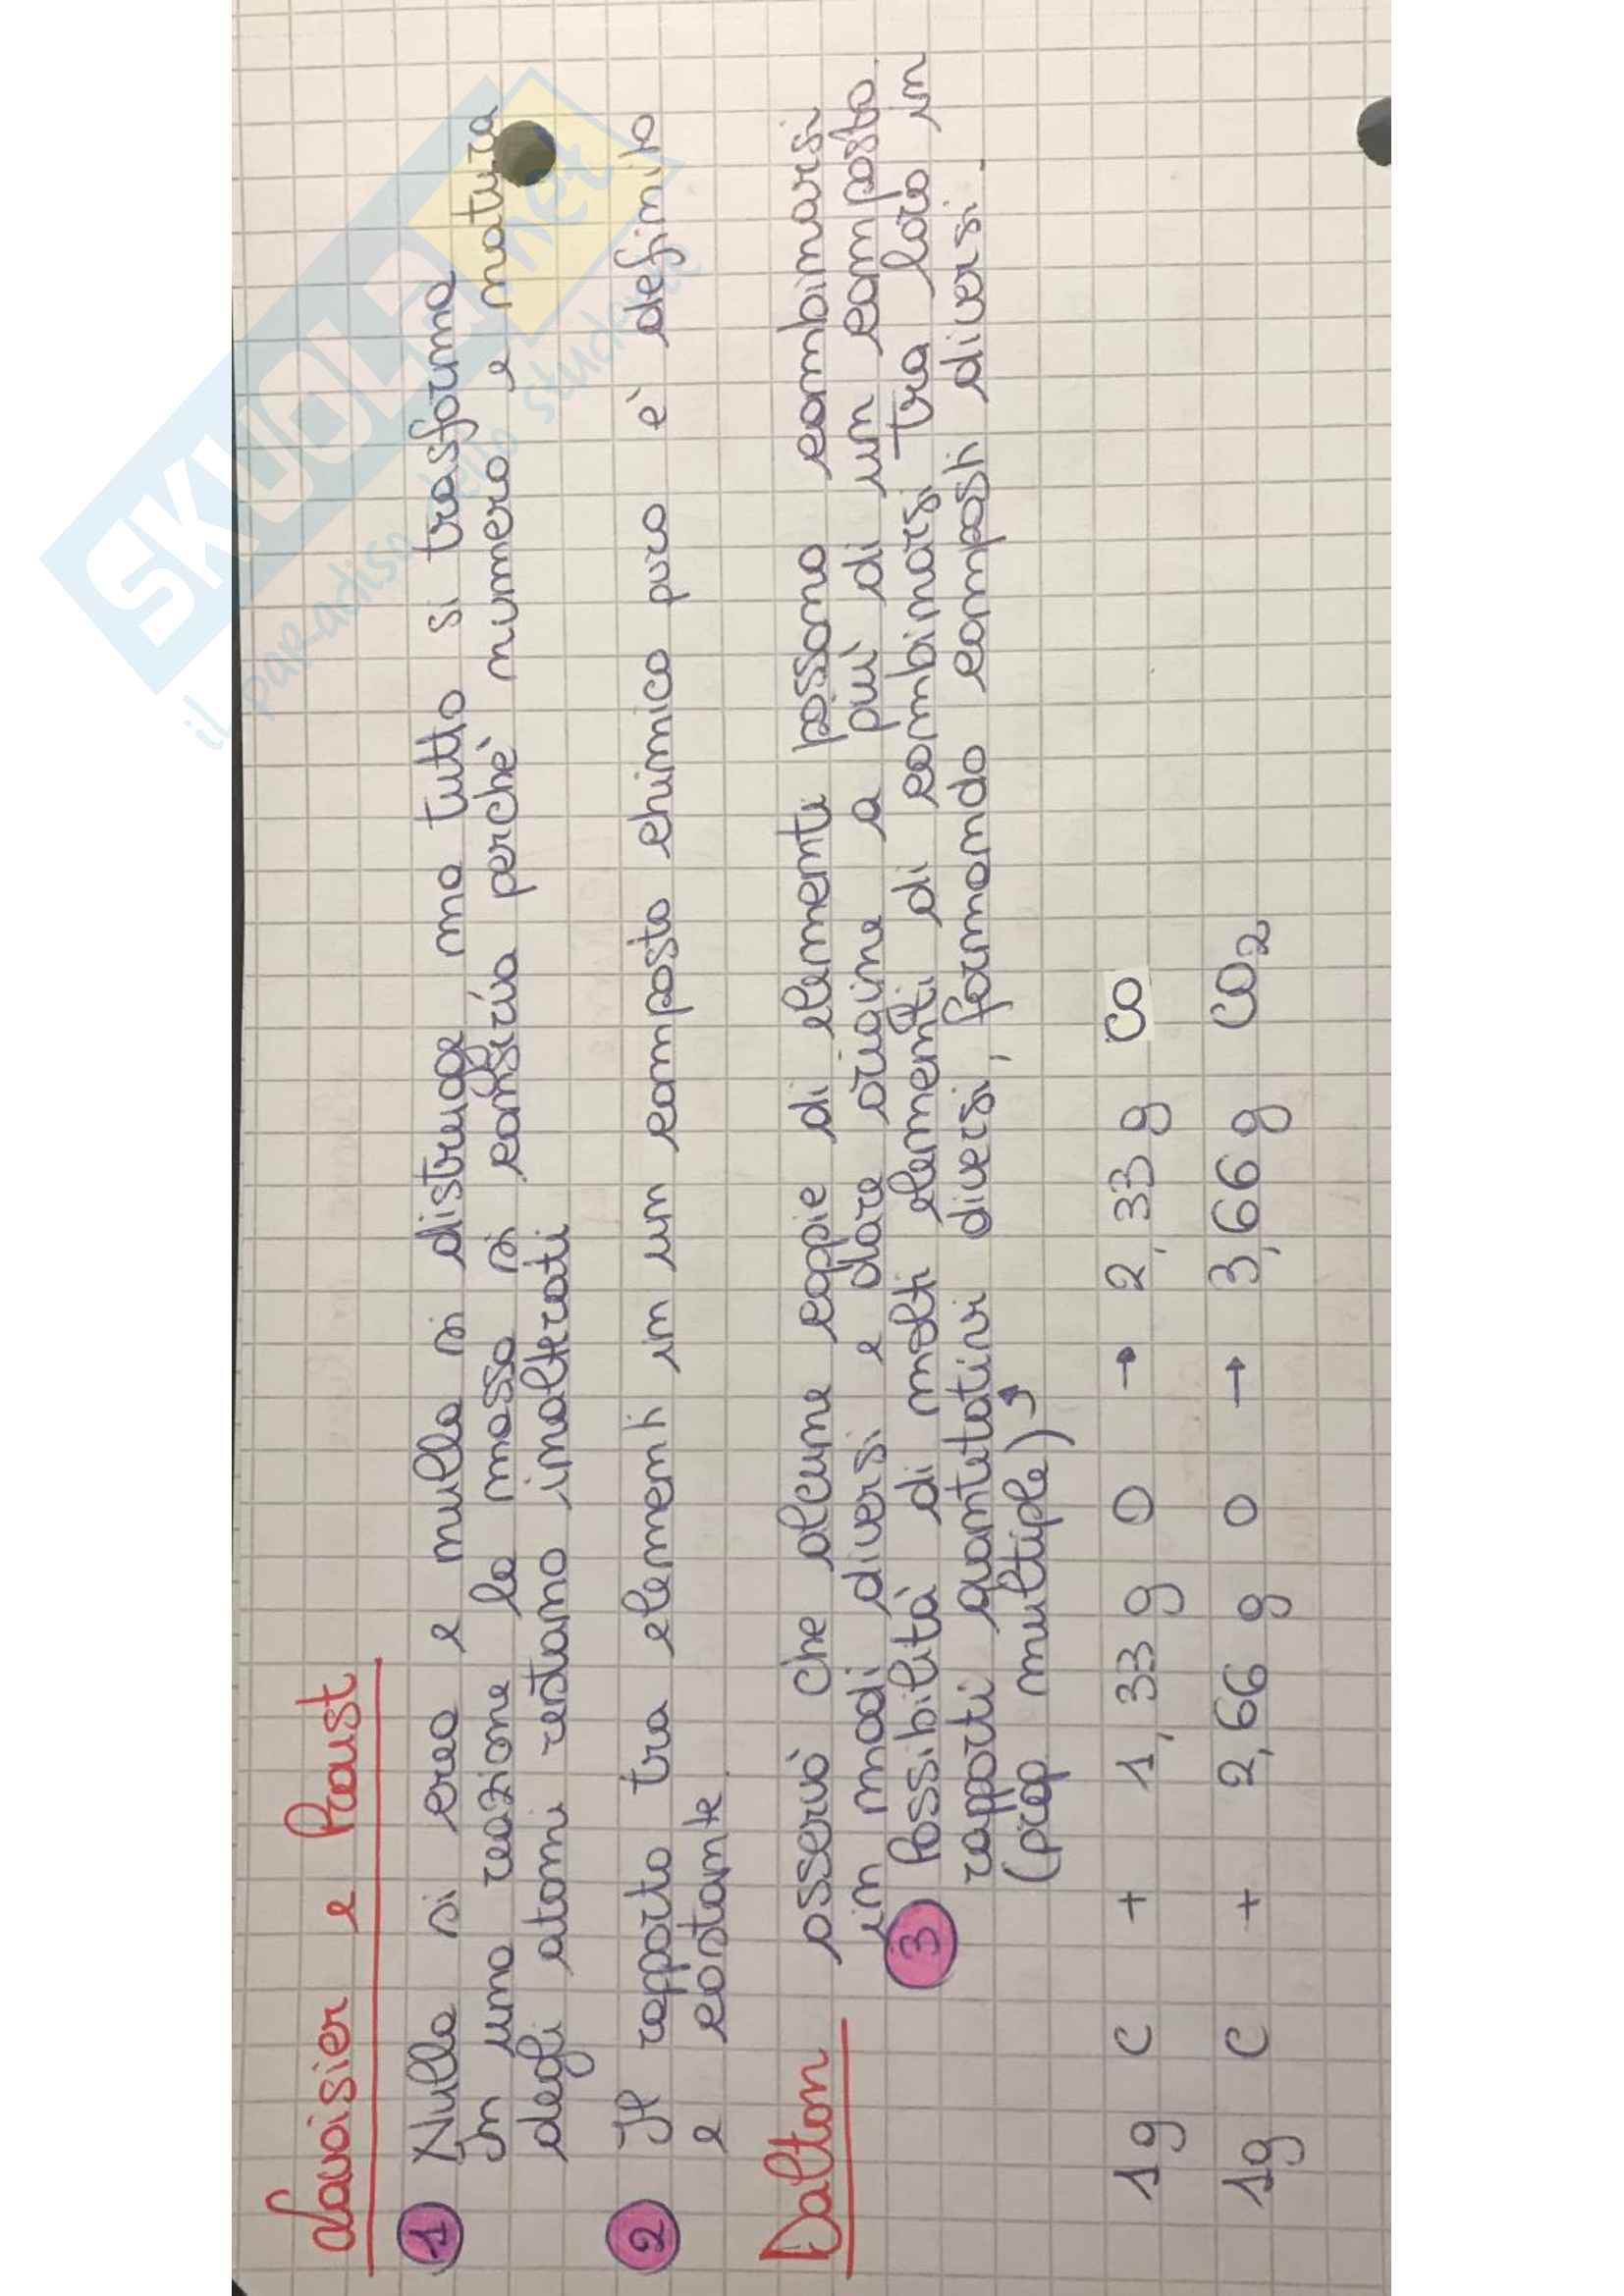 Lavoisier e Proust
1 Nulla si crea e nulla si distrugge ma tutto si trasforma
In una reazione la massa si conserva perchè numero e natura
degli atomi restano inalterati
2 Il rapporto tra elementi in un composto chimico puro e' definito
e costante.
Dalton osservò che alcune coppie di elementi possono combinarsi
in modi diversi e dare origine a più di un composto.
3 Possibilità di molti elementi di combinarsi tra loro in
rapporti quantitativi diversi, formando composti diversi.
(prop multiple)
1g C + 1,33 g O → 2,33 g CO
1g C + 2,66 g O → 3,66 g CO2
SKUOLA.net
il paradiso dello studente